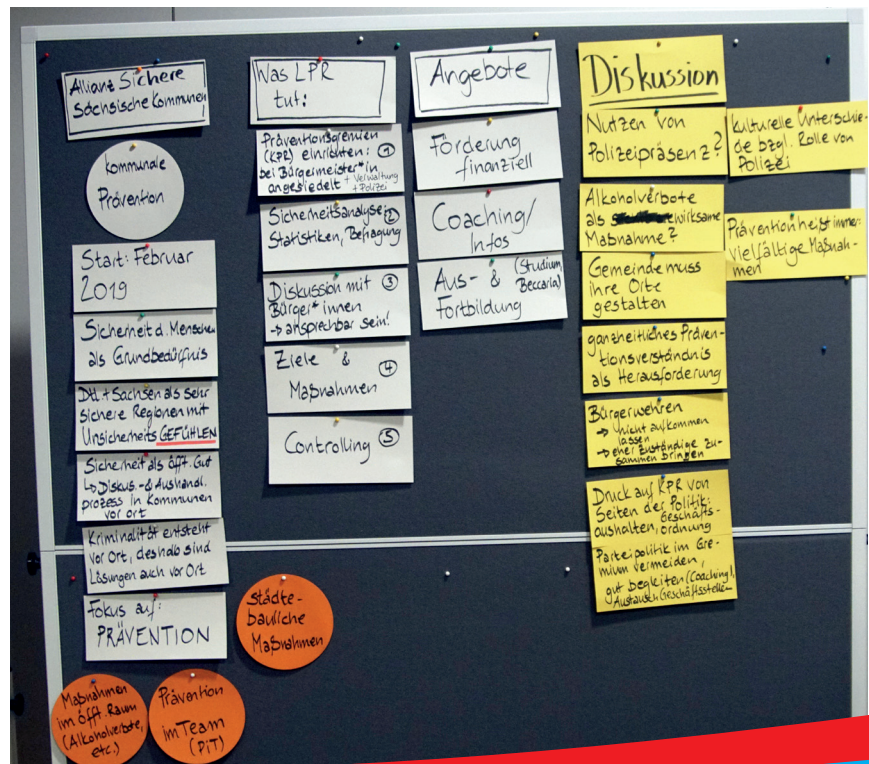 Allianz Sichere
Sächsische Kommunen!
kommunale
Prävention
Start: Februar
2019
Sicherheit d. Menschen
als Grundbedürfnis
Dtl. + Sachsen als sehr
sichere Regionen mit
Unsicherheits GEFÜHLEN
Sicherheit als öfftl. Gut
↳ Diskus.- & Aushandl.
prozess in Kommunen
vor ort
Kriminalität entsteht
vor Ort, deshalb sind
Lösungen auch vor Ort
Fokus auf:
PRÄVENTION
Maßnahmen
im öfftl. Raum
(Alkoholverbote,
etc.)
Prävention
im Team
(PiT)
Städte-
bauliche
Maßnahmen
Was LPR
tut:
Präventionsgremien
(KPR) einrichten: ①
bei Bürgermeister*in
angesiedelt + Verwaltung
+ Polizei
Sicherheitsanalyse: ②
Statistiken, Befragung
Diskussion mit ③
Bürger*innen
→ ansprechbar sein!
Ziele & ④
Maßnahmen
Controlling ⑤
Angebote
Förderung
finanziell
Coaching/
Infos
Aus- & (Studium,
Beccaria)
Fortbildung
Diskussion
Nutzen von
Polizeipräsenz?
Alkoholverbote
als wirksame
Maßnahme?
Gemeinde muss
ihre Orte
gestalten
ganzheitliches Präven-
tionsverständnis
als Herausforderung
Bürgerwehren
→ nicht aufkommen
lassen
→ eher zuständige zu-
sammen bringen
Druck auf KPR von
Seiten der Politik:
aushalten, Geschäfts-
ordnung
Parteipolitik im Gre-
mium vermeiden,
gut begleiten (Coaching),
Austausch Geschäftsstelle
kulturelle Unterschie-
de bzgl. Rolle von
Polizei
Prävention heißt immer:
vielfältige Maßnah-
men